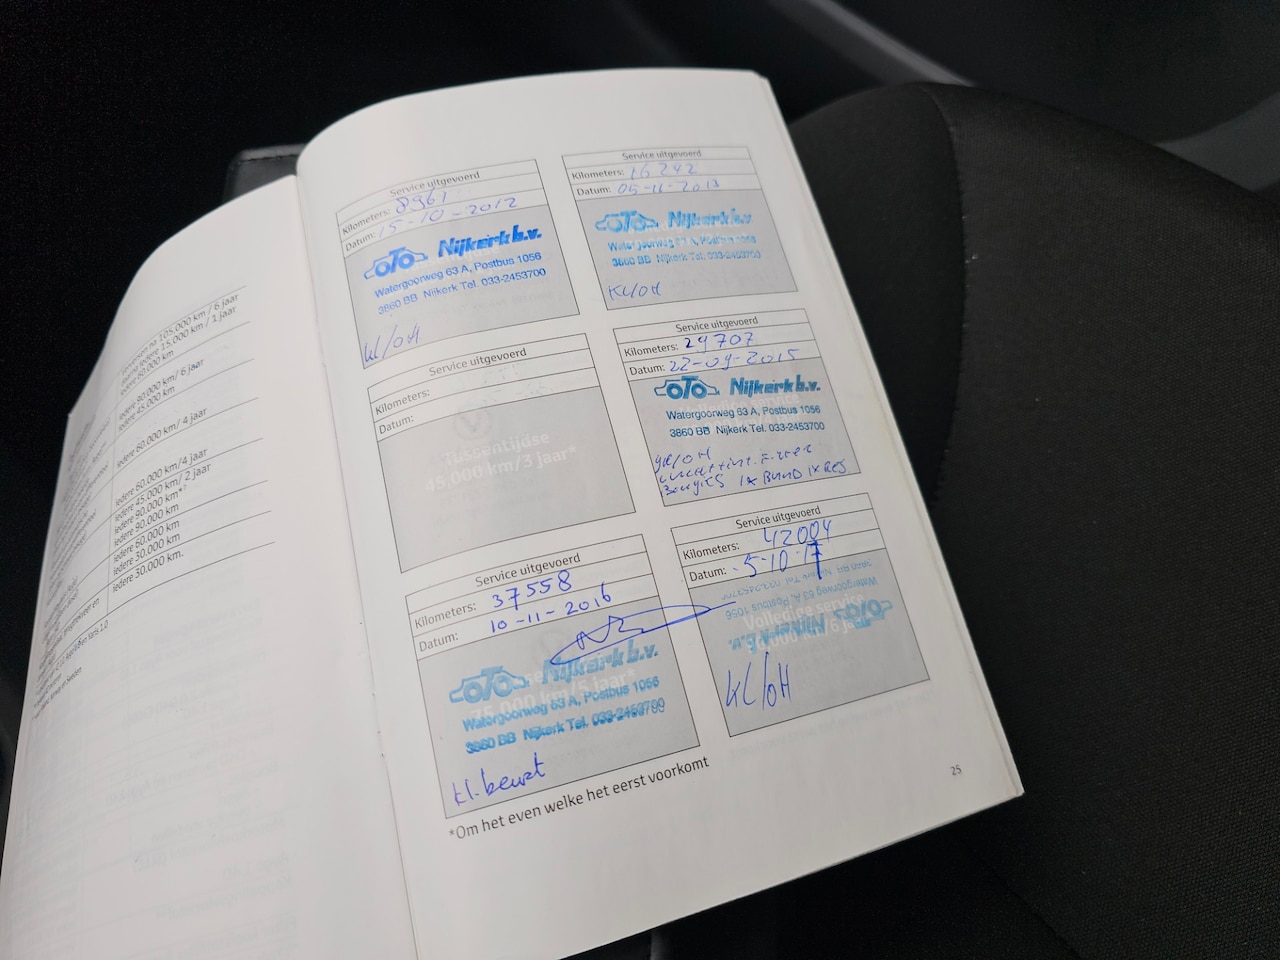 Service uitgevoerd
Kilometers: 8961
Datum: 15-10-2012
OTO Nijkerk b.v.
Watergoorweg 63 A, Postbus 1056
3860 BB Nijkerk Tel. 033-2453700
KL/OH
Service uitgevoerd
Kilometers: 16242
Datum: 05-11-2013
OTO Nijkerk b.v.
Watergoorweg 63 A, Postbus 1056
3860 BB Nijkerk Tel. 033-2453700
KL/OH
Service uitgevoerd
Kilometers:
Datum:
Tussentijdse
45.000 km/3 jaar*
Service uitgevoerd
Kilometers: 29707
Datum: 22-09-2015
OTO Nijkerk b.v.
Watergoorweg 63 A, Postbus 1056
3860 BB Nijkerk Tel. 033-2453700
gR/OH
Bougies 1x Band 1x Res
Service uitgevoerd
Kilometers: 37558
Datum: 10-11-2016
OTO Nijkerk b.v.
Watergoorweg 63 A, Postbus 1056
3860 BB Nijkerk Tel. 033-2453700
75.000 km/5 jaar*
kl. beurt
Service uitgevoerd
Kilometers: 42004
Datum: 5-10-17
3860 BB Nijkerk Tel. 033-2453700
Watergoorweg 63 A, Postbus 1056
Volledige service
OTO Nijkerk b.v.
KL/OH
*Om het even welke het eerst voorkomt
25
iedere 15.000 km / 1 jaar
iedere 60.000 km
iedere 90.000 km/ 6 jaar
iedere 45.000 km
iedere 60.000 km/ 4 jaar
iedere 60.000 km/4 jaar
iedere 45.000 km/ 2 jaar
iedere 90.000 km*
iedere 90.000 km
iedere 60.000 km
iedere 30.000 km
iedere 30.000 km.